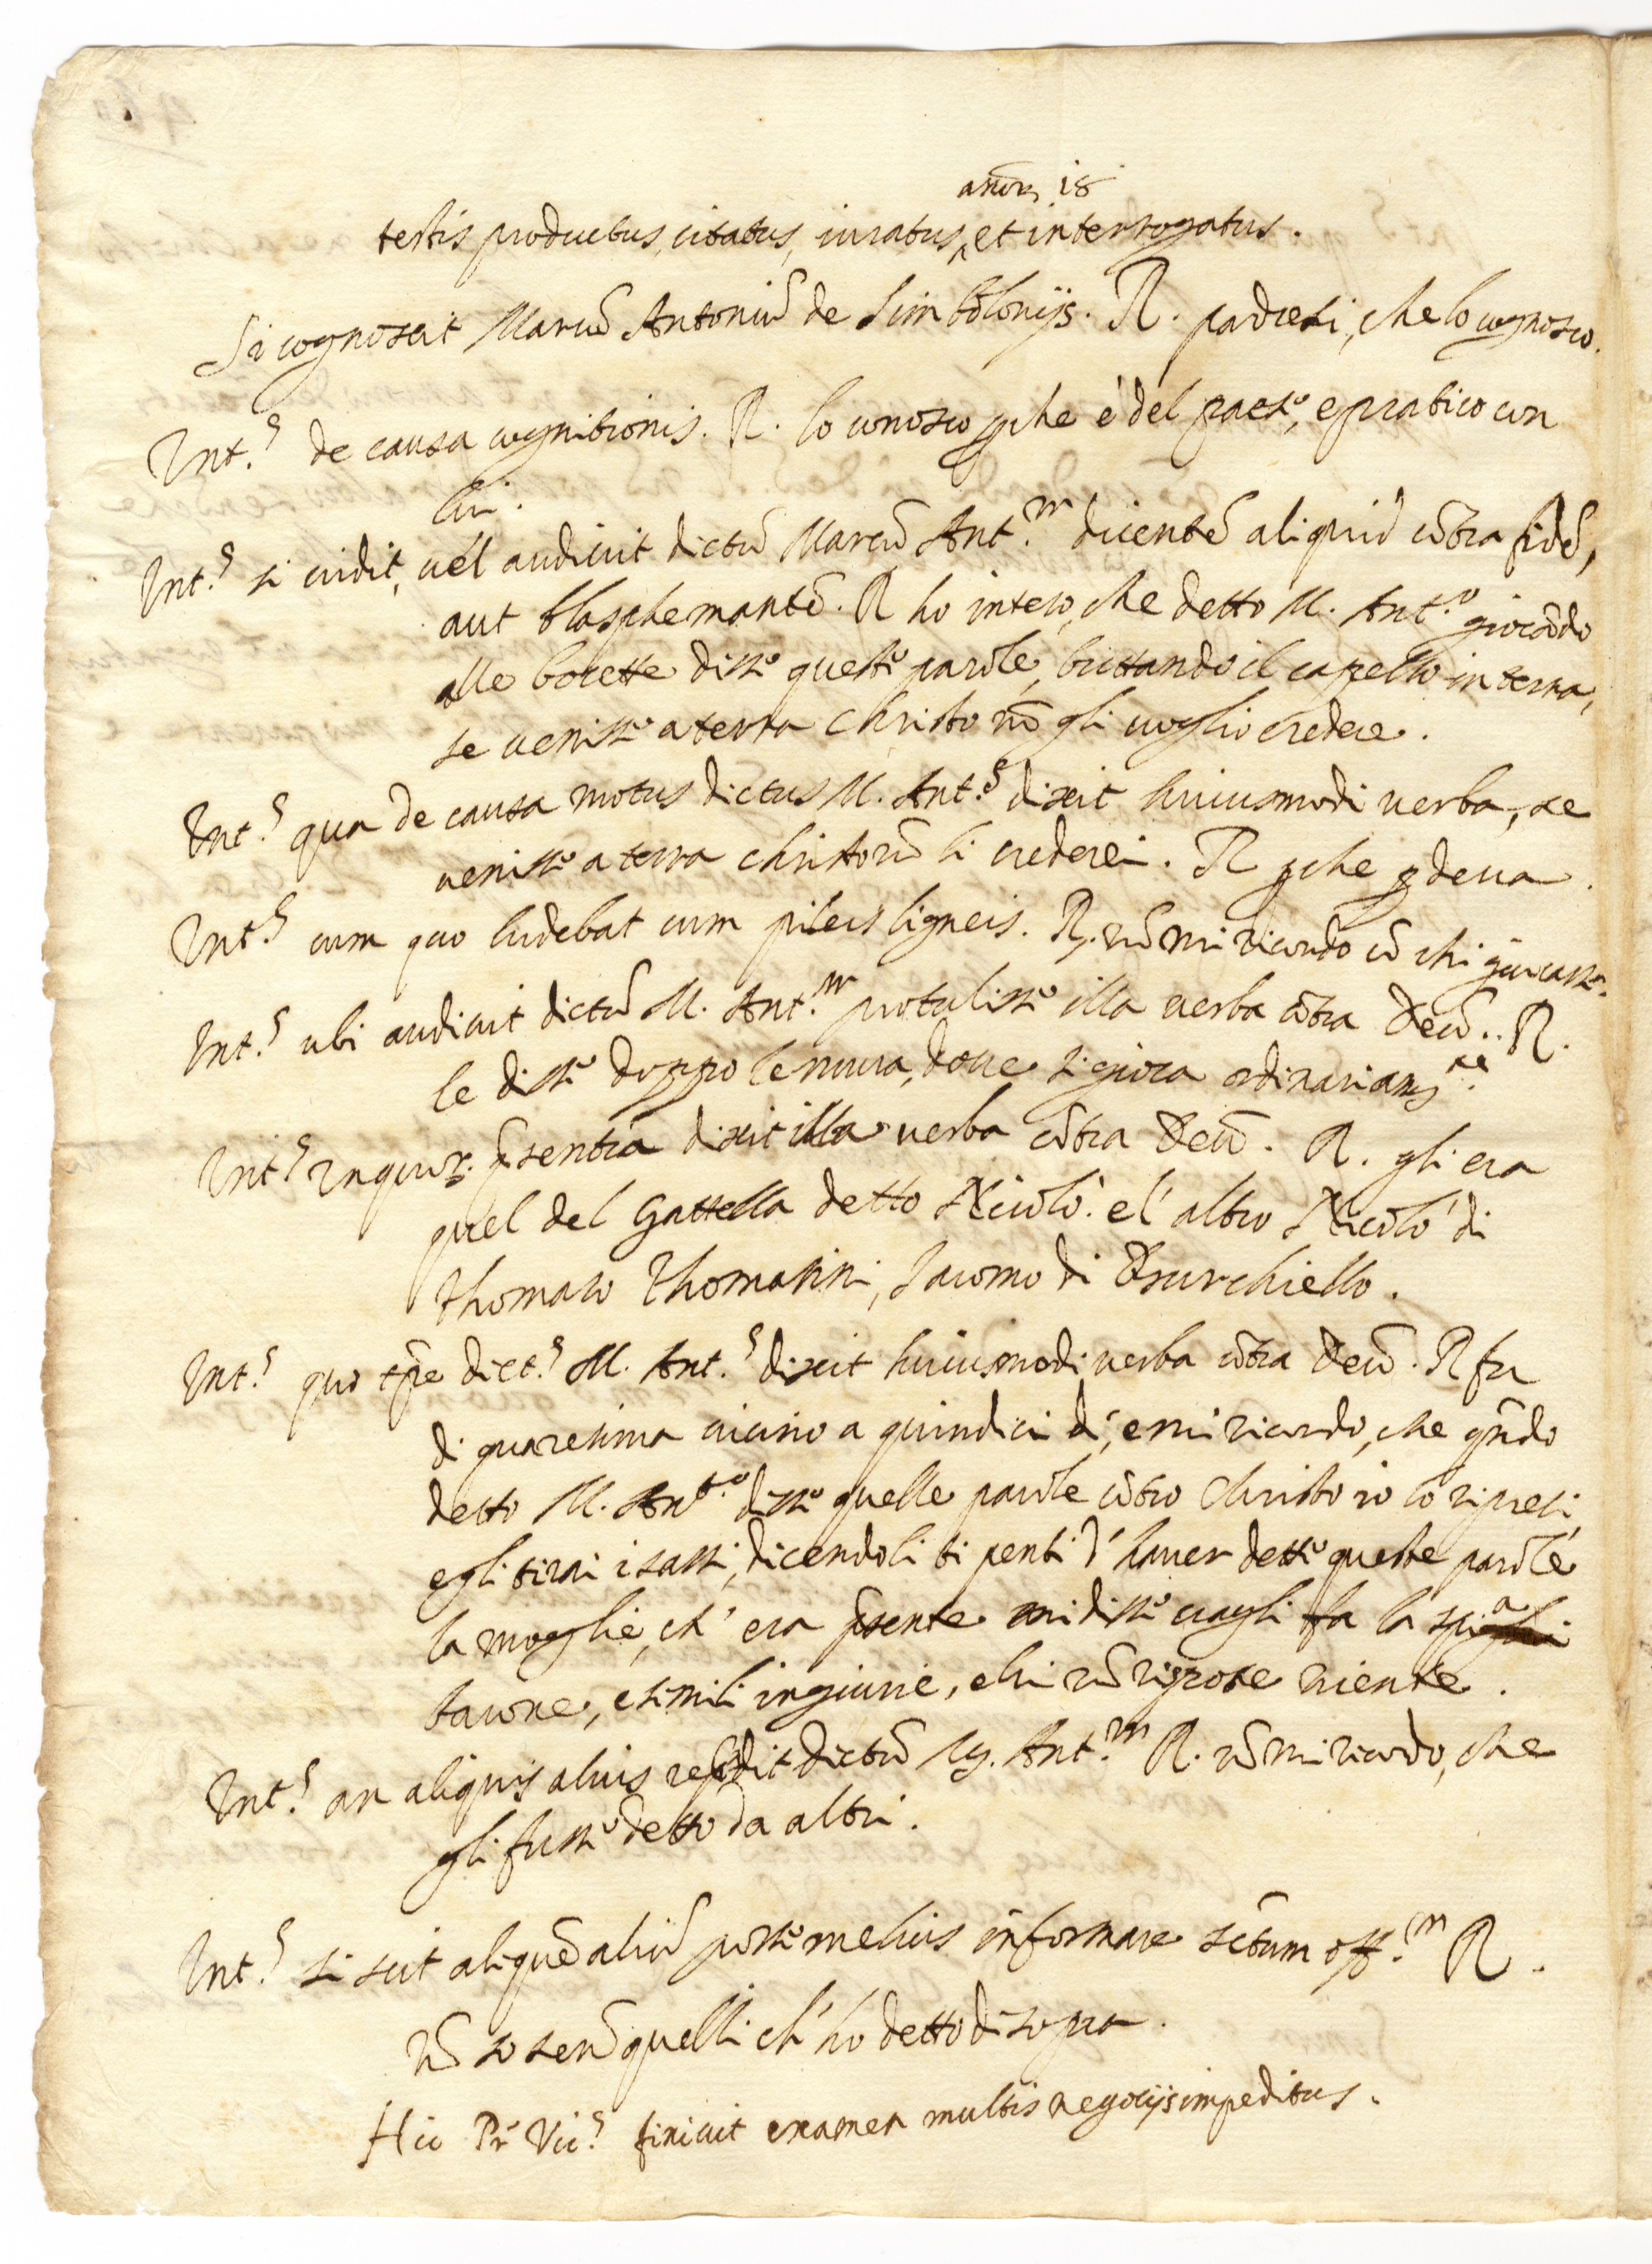 annor, 18
testis productus, citatus, iuratus, ^ et interrogatus.
Si cognoscit Marcũ Antoniũ de Simboloniys. R. padre si, che lo cognosco.
Int.s de causa cognitionis. R. lo conosco ꝑche è del paese, e pratico con
lui.
Int.s si vidit, vel audivit dictũ Marcũ Ant.m dicentẽ aliquid cõtra fidẽ,
aut blasphemantẽ. R ho inteso, che detto M. Ant.o giocãdo
alle borette disse queste parole, buttando il capello in terra,
se venisse a terra Christo nõ gli voglio credere.
Int.s qua de causa motus dictus M. Ant.s dixit huiusmodi verba, se
venisse a terra christo nõ li crederei. R ꝑche ꝑdeua.
Int.s cum quo ludebat cum pileis ligneis. R. nõ mi ricordo cõ chi giocasse.
Int.s ubi audivit dictũ M. Ant.m protulisse illa verba cõtra Deũ. R.
le disse doppo le mura, doue si gioca ordinariam.te
Int.s in quor. p̃sentia dixit illa verba cõtra Deũ. R. gli era
quel del Gattella detto Nicolò. e l'altro Nicolò di
Thomaso Thomasini, Jacomo di Burchiello.
Int.s quo tp̃e dict.s M. Ant.s dixit huiusmodi verba cõtra Deũ. R fu
di quaresima vicino a quindici dì, e mi ricordo, che qñdo
detto M. Ant.o disse quelle parole cõtro Christo io lo ripresi
e gli tirai i sassi, dicendoli ti penti d'hauer dette queste parole
la moglie, ch' era p̃sente mi disse vagli fa la spia
tacone, e simili ingiurie, e lui nõ rispose niente.
Int.s an aliquis alius rep̃dit dictũ M. Ant.m R. nõ mi ricordo, che
gli fusse detto da altri.
Int.s si scit aliquẽ aliũ posse melius informare sc̃tum off.m R.
nõ so se nõ quelli ch' ho detto di sopra.
Hic Pr̃ Vic.s finivit examen multis negociys impeditus.